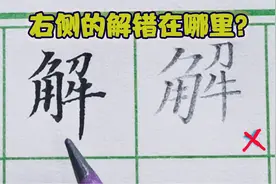 右侧的解错在哪里?
解 解